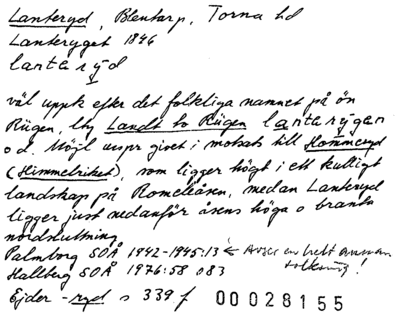 Lanteryd, Blentarp, Torna hd
Lanteryget 1846
lantarýd
väl uppk efter det folkliga namnet på ön
Rügen, lty Landt to Rügen lantarýgen
o d. Möjl urspr givet i motsats till Hämmeryd
(Himmelriket), som ligger högt i ett kulligt
landskap på Romeleåsen, medan Lanteryd
ligger just nedanför åsens höga o branta
nordsluttning
Palmborg SOÅ 1942-1945:13 ← Avser en helt annan
tolkning!
Hallberg SOÅ 1976:58 o 83
Ejder -ryd s 339 f 00028155